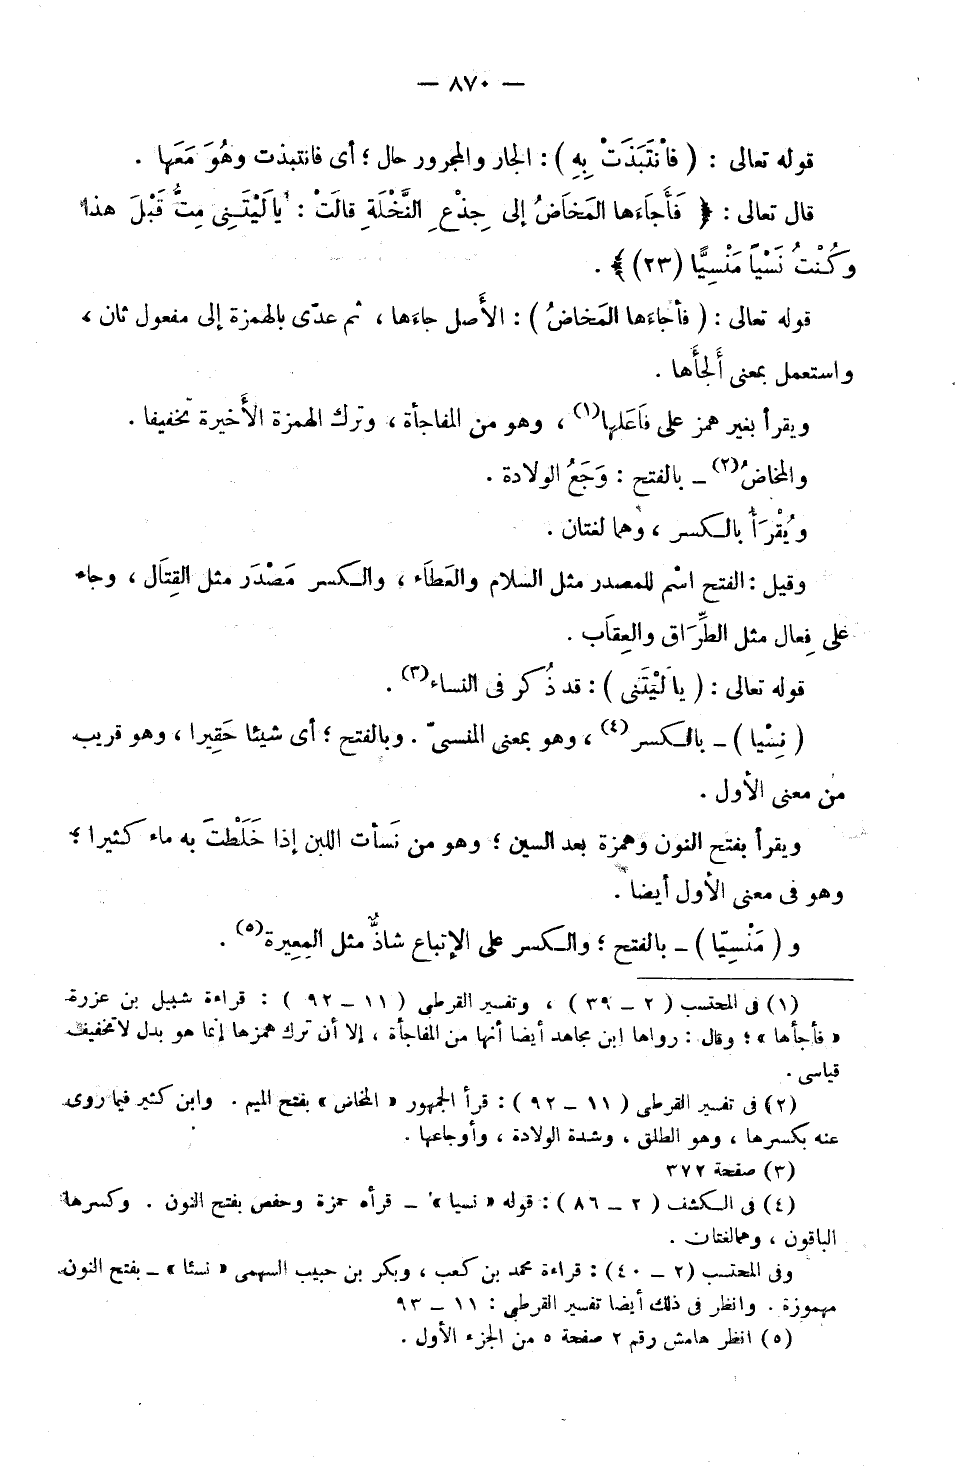 — ٨٧٠ —
قوله تعالى : ( فَانْتَبَذَتْ بِهِ ) : الجار والمجرور حال ؛ أى فانتبذت وهُوَ مَعَها .
قال تعالى : ﴿ فَأَجَاءَها المَخاَضُ إلى جِذْعِ النَّخْلَةِ قالَتْ : يا لَيْتَنِى مِتُّ قَبْلَ هذا
وكُنْتُ نَسْياً مَنْسِيًّا (٢٣) ﴾ .
قوله تعالى : ( فأجاءَها المَخاضُ ) : الأَصل جاءَها ، ثم عدّى بالهمزة إلى مفعول ثان ،
واستعمل بمعنى أَلجأَها .
ويقرأ بغير همز على فاَعَلها(١) ، وهو من المفاجأة ، وترك الهمزة الأَخيرة تخفيفا .
والمخاضُ(٢) ــ بالفتح : وَجَعُ الولادة .
ويُقْرَأُ بالـكسر ، وهما لغتان .
وقيل : الفتح اسْم للمصدر مثل السلام والعَطاَء ، والـكسر مَصْدَر مثل القِتاَل ، وجاء
على فِعال مثل الطِّرَاق والعِقاَب .
قوله تعالى : ( ياَ لَيْتَنى ) : قد ذُكر فى النساء(٣) .
( نِسْيا ) ــ بالـكسر(٤) ، وهو بمعنى المنسىّ . وبالفتح ؛ أى شيئا حَقِيرا ، وهو قريب
من معنى الأول .
ويقرأ بفتح النون وهمزة بعد السين ؛ وهو من نَسأت اللبن إذا خَلَطْتَ به ماء كثيرا ؛
وهو فى معنى الأول أيضا .
و ( مَنْسِيّا ) ــ بالفتح ؛ والـكسر على الإتباع شاذٌّ مثل المِعِيرة(٥) .
(١) فى المحتسب ( ٢ ــ ٣٩ ) ، وتفسير القرطى ( ١١ ــ ٩٢ ) : قراءة شبيل بن عزرة
« فأجأها » ؛ وقال : رواها ابن مجاهد أيضا أنها من المفاجأة ، إلا أن ترك همزها إنما هو بدل لا تخفيف
قياسى .
(٢) فى تفسير القرطى ( ١١ ــ ٩٢ ) : قرأ الجمهور « المخاض » بفتح الميم . وابن كثير فيما روى
عنه بكسرها ، وهو الطلق ، وشدة الولادة ، وأوجاعها .
(٣) صفحة ٣٧٢
(٤) فى الـكشف ( ٢ ــ ٨٦ ) : قوله « نسيا » ــ قرأه حمزة وحفص بفتح النون . وكسرها
الباقون ، وهما لغتان .
وفى المحتسب (٢ ــ ٤٠) : قراءة محمد بن كعب ، وبكر بن حبيب السهمى « نسئا » ــ بفتح النون
مهموزة . وانظر فى ذلك أيضا تفسير القرطى : ١١ ــ ٩٣
(٥) انظر هامش رقم ٢ صفحة ٥ من الجزء الأول .